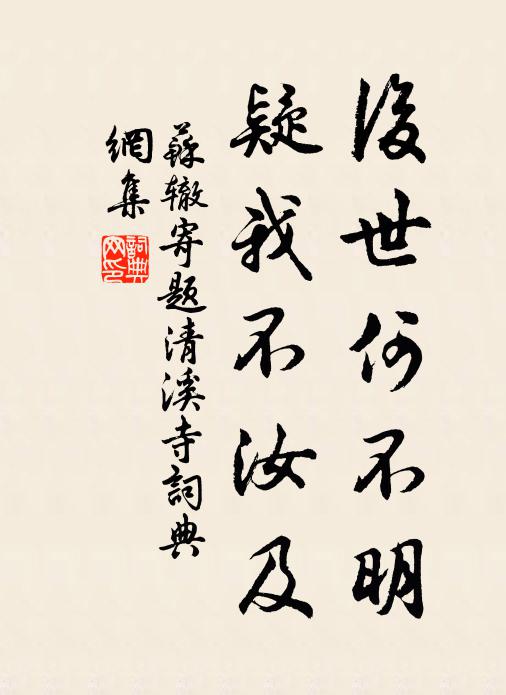 後世何不明
疑我不汝及
蘇辙寄题清溪寺詞典
網集
詞典
网印